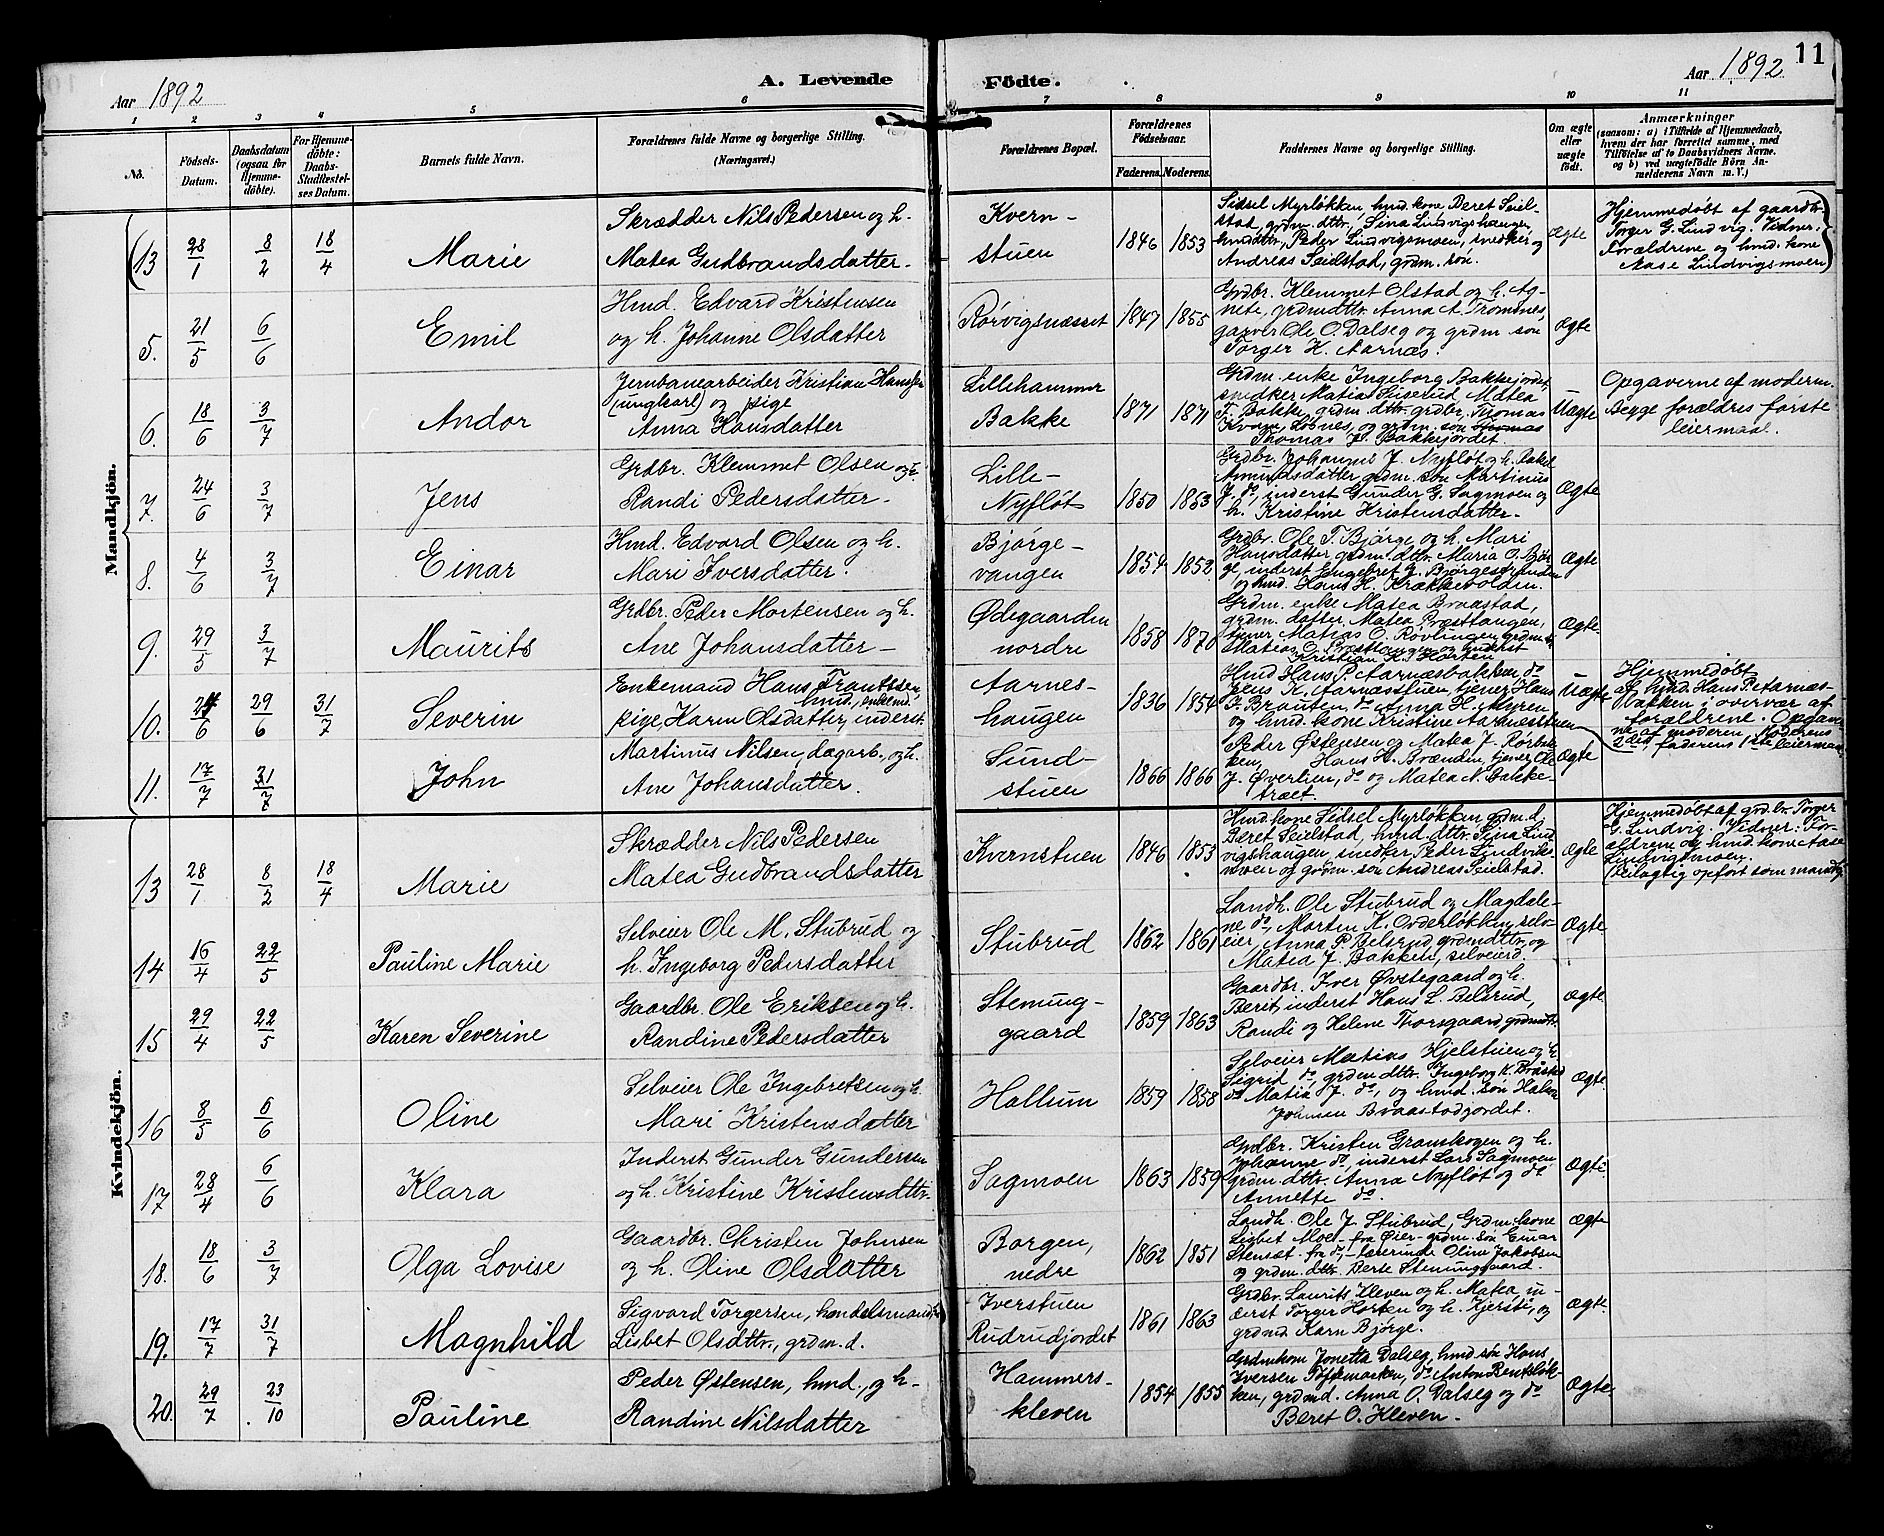 11
Aar 1892
A. Levende Födte.
Aar 1892
1 2 3 4 5 6 7 8 9 10 11
No.
Födsels-Datum.
Daabsdatum (ogsaa for Hjemmedöbte).
For Hjemmedöbte: Daabs-Stadfæstelses Datum.
Barnets fulde Navn.
Forældrenes fulde Navne og borgerlige Stilling. (Næringsvei.)
Forældrenes Bopæl.
Forældrenes Födselsaar.
Faderens. Moderens.
Faddernes Navne og borgerlige Stilling.
Om ægte eller uægte födt.
Anmærkninger
(saasom: a) i Tilfælde af Hjemmedaab, hvem der har forrettet samme, med Tilföielse af to Daabsvidners Navne. og b) ved uægtefödte Börn Anmelderens Navn m. V.)
Mandkjön.
(13 28/1 8/2 18/4 Marie
Skrædder Nils Pedersen og h.
Matea Gudbrandsdatter.
Kvern-
stuen
1846 1853
Sidsel Myrløkken hmd. kone Beret Seiel-
stad, grdm. dttr., Sina Lindvigshaugen,
hmd.dttr., Peder Lindvigsmoen, snedker og
Andreas Seielstad, grdm. søn.
Ægte
Hjemmedøbt af gaardbr.
Torger G. Lindvig. Vidner:
Forældrene og hmd. kone
Aase Lindvigsmoen)
5. 21/5 6/6 Emil
Hmd. Edvard Kristensen
og h. Johanne Olsdatter
Rørvigsnæsset
1847 1855
Grdbr. Klemmet Olstad og h. Ag-
nete, grdmdttr. Anna A. Tromsnes,
garver Ole O. Dalseg og grdm. søn
Torger H. Aarnæs.
Ægte
6. 18/6 3/7 Andor
Jernbanearbeider Kristian Hansen
(ungkarl) og pige
Anna Hansdatter
Lillehammer
Bakke
1871 1871
Grdm. enke Ingeborg Bakkejordet,
snedker Matias Suserud, Matea
T. Bakke grdm. dttr. grdbr. Thomas
Kvam, Løsnes, og grdm. søn Thomas
Thomas J. Bakkejordet
Uægte
Opgaverne af moderen.
Begge forældres første
leiermaal.
7. 24/6 3/7 Jens
Grdbr. Klemmet Olsen og h.
Randi Pedersdatter.
Lille-
Nyfløt
1850 1853
Grdbr. Johannes J. Nyfløt og h. Rakel
Amundsdatter, grdm. søn Martinus
J. do, inderst Gunder G. Sagmoen og
h. Kristine Kristensdatter.
Ægte
8. 4/6 3/7 Einar
Hmd. Edvard Olsen og h.
Mari Iversdatter.
Bjørge-
vangen
1854 1852
Grdbr. Ole T. Bjørge og h. Mari
Hansdatter, grdm. dttr. Maria O. Bjør-
ge, inderst Engebret G. Bjørgestranden
og hmd. Hans H. Krækkevolden.
Ægte
9. 29/5 3/7 Maurits
Grdbr. Peder Mortensen og h.
Ane Johansdatter
Ødegaarden
nordre
1858 1870
Grdm. enke Matea Braastad,
grdm. datter, Matea Præsttangen,
tjener Matias O. Røvlingen grdm. s.
Matias O. Præsttangen og inderst
Kristian K. Horten
Ægte.
10. 24/6 29/6 31/7 Severin
Enkemand Hans Frantssen,
hmd., enkemd.
pige, Karen Olsdatter, inderst.
Aarnes-
haugen
1836 1854
Hmd. Hans P. Aarnæsbakken, do
Jens K. Aarnæsstuen, tjener Hans
F. Brauten, do Anna H. Myren
og hmd. kone Kristine Aarnæsstuen
Uægte
Hjemmedøbt
af hmd. Hans P. Aarnæs-
bakken i overvær af
forældrene. Opgaver-
ne af moderen. Moderens
2det faderens 1ste leiermaal.
11. 17/7 31/7 John
Martinus Nilsen, dagarb. og h.
Ane Johansdatter.
Sund-
stuen
1866 1866
Peder Østensen og Matea J. Rørbæk-
ken, Hans H. Brænden, tjener, Ole
J. Øverlien, do og Matea N. Bakke-
træet.
Ægte
Kvindekjön.
13 28/1 8/2 18/4 Marie
Skrædder Nils Pedersen
Matea Gudbrandsdatter
Kvernstuen
1846 1853
Hmd. kone Sidsel Myrløkken grdm. d.
Beret Seielstad, hmd. dttr. Sina Lind-
vigshaugen, snedker, Peder Lindvigs-
moen og grdm. søn Andreas Seielstad.
Ægte
Hjemmedøbt af grdbr. Torger
G. Lindvig. Vidner: For-
ældrene og hmd. kone Aase
Lindvigsmoen.
(Feilagtig opført som mandkj.)
14 16/4 22/5 Pauline Marie
Selveier Ole M. Stubrud og
h. Ingeborg Pedersdatter
Stubrud
1862 1861
Landh. Ole Stubrud og Magdale-
ne do, Morten K. Onderløkken, selv-
eier, Anna P. Belsrud, grdmdttr. og
Matea J. Bakken, selveierd.
Ægte
15 29/4 22/5 Karen Severine
Gaardbr. Ole Eriksen og h.
Randine Pedersdatter
Stenung-
gaard
1859 1863
Gaardbr. Iver Øvstegaard og h.
Berit, inderst Hans L. Belsrud,
Randi og Helene Thorsgaard grdmdtr.
Ægte
16 8/5 6/6 Oline
Selveier Ole Ingebretsen og h.
Mari Kristensdatter
Hallum
1859 1858
Selveier Matias Hjelstuen og h.
Sigrid do, grdm dttr. Ingeborg K. Bråstad
do Matia J. do, og hmd. søn Halvor
Johnsen Braastadjordet.
Ægte
17 28/4 6/6 Klara
Inderst Gunder Gundersen
og h. Kristine Kristensdttr.
Sagmoen
1863 1859
Grdbr. Kristen Granskogen og h.
Johanne do, inderst Lars Sagmoen
grdm. dttr. Anna Nyfløt og do
Annette do.
Ægte
18. 18/6 3/7 Olga Lovise
Gaardbr. Christen Johnsen
og h. Oline Olsdatter
Borgen,
nedre
1862 1851
Landh. Ole J. Stubrud, Grdm. kone
Ligbet Moe - fra Øier - grdm. søn Einar
Stensæt - fra do, - lærerinde Oline Jakobsen
og grdm. dttr. Berte Stenumgaard.
Ægte
19. 17/7 31/7 Magnhild
Sigvard Torgersen, handelsmand,
Lisbet Olsdttr., grdm. d.
Iverstuen
Rudrudjordet
1861 1863
Grdbr. Laurits Kleven og h. Matea in-
derst Torger Horten og h. Kjersti, og
grdmd. Karn Bjørge.
Ægte
20. 29/7 23/10 Pauline
Peder Østensen, hmd., og h.
Randine Nilsdatter
Hammers-
kleven
1854 1855
Grdmkone Jonetta Dalseg, hmd. søn Hans
Iversen Toftemarken, do Anton Rentsløk-
ken, grdm d. Anna O. Dalseg og do
Beret O. Kleven.
Ægte